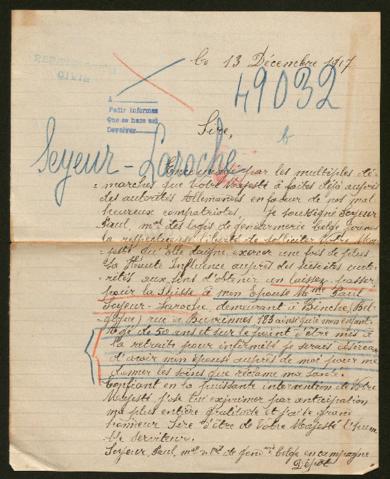 Ce 13 Décembre 1917
49032
A
Pedir informes
Que se hace así
Devolver
Sire,
Seyeur-Laroche
Encouragé par les multiples dé-
marches que Votre Majesté a faites déjà auprès
des autorités Allemandes en faveur de nos mal-
heureux compatriotes je soussigné Seyeur
Paul, mal des logis de gendarmerie belge prends
la respectueuse liberté de solliciter Votre Maj-
esté qu'Elle daigne exercer une fois de plus
Sa Haute Influence auprès des susdites auto-
rités aux fins d'obtenir un laissez-passer
pour la Suisse à mon épouse Mme Paul
Seyeur-Laroche, demeurant à Binche, Bel-
gique, rue de 123 ainsi que mon enfant.
Agé de 50 ans et sur le point d'être mis à
la retraite pour infirmité je serais désireux
d'avoir mon épouse auprès de moi pour me
donner les soins que réclame ma santé.
Confiant en la puissante intervention de Votre
Majesté j'ose lui exprimer par anticipation
ma plus entière gratitude et j'ai le grand
honneur Sire d'être de Votre Majesté l'hum-
ble serviteur.
Seyeur, Paul, mal des de gendie belge en campagne
Dépôt